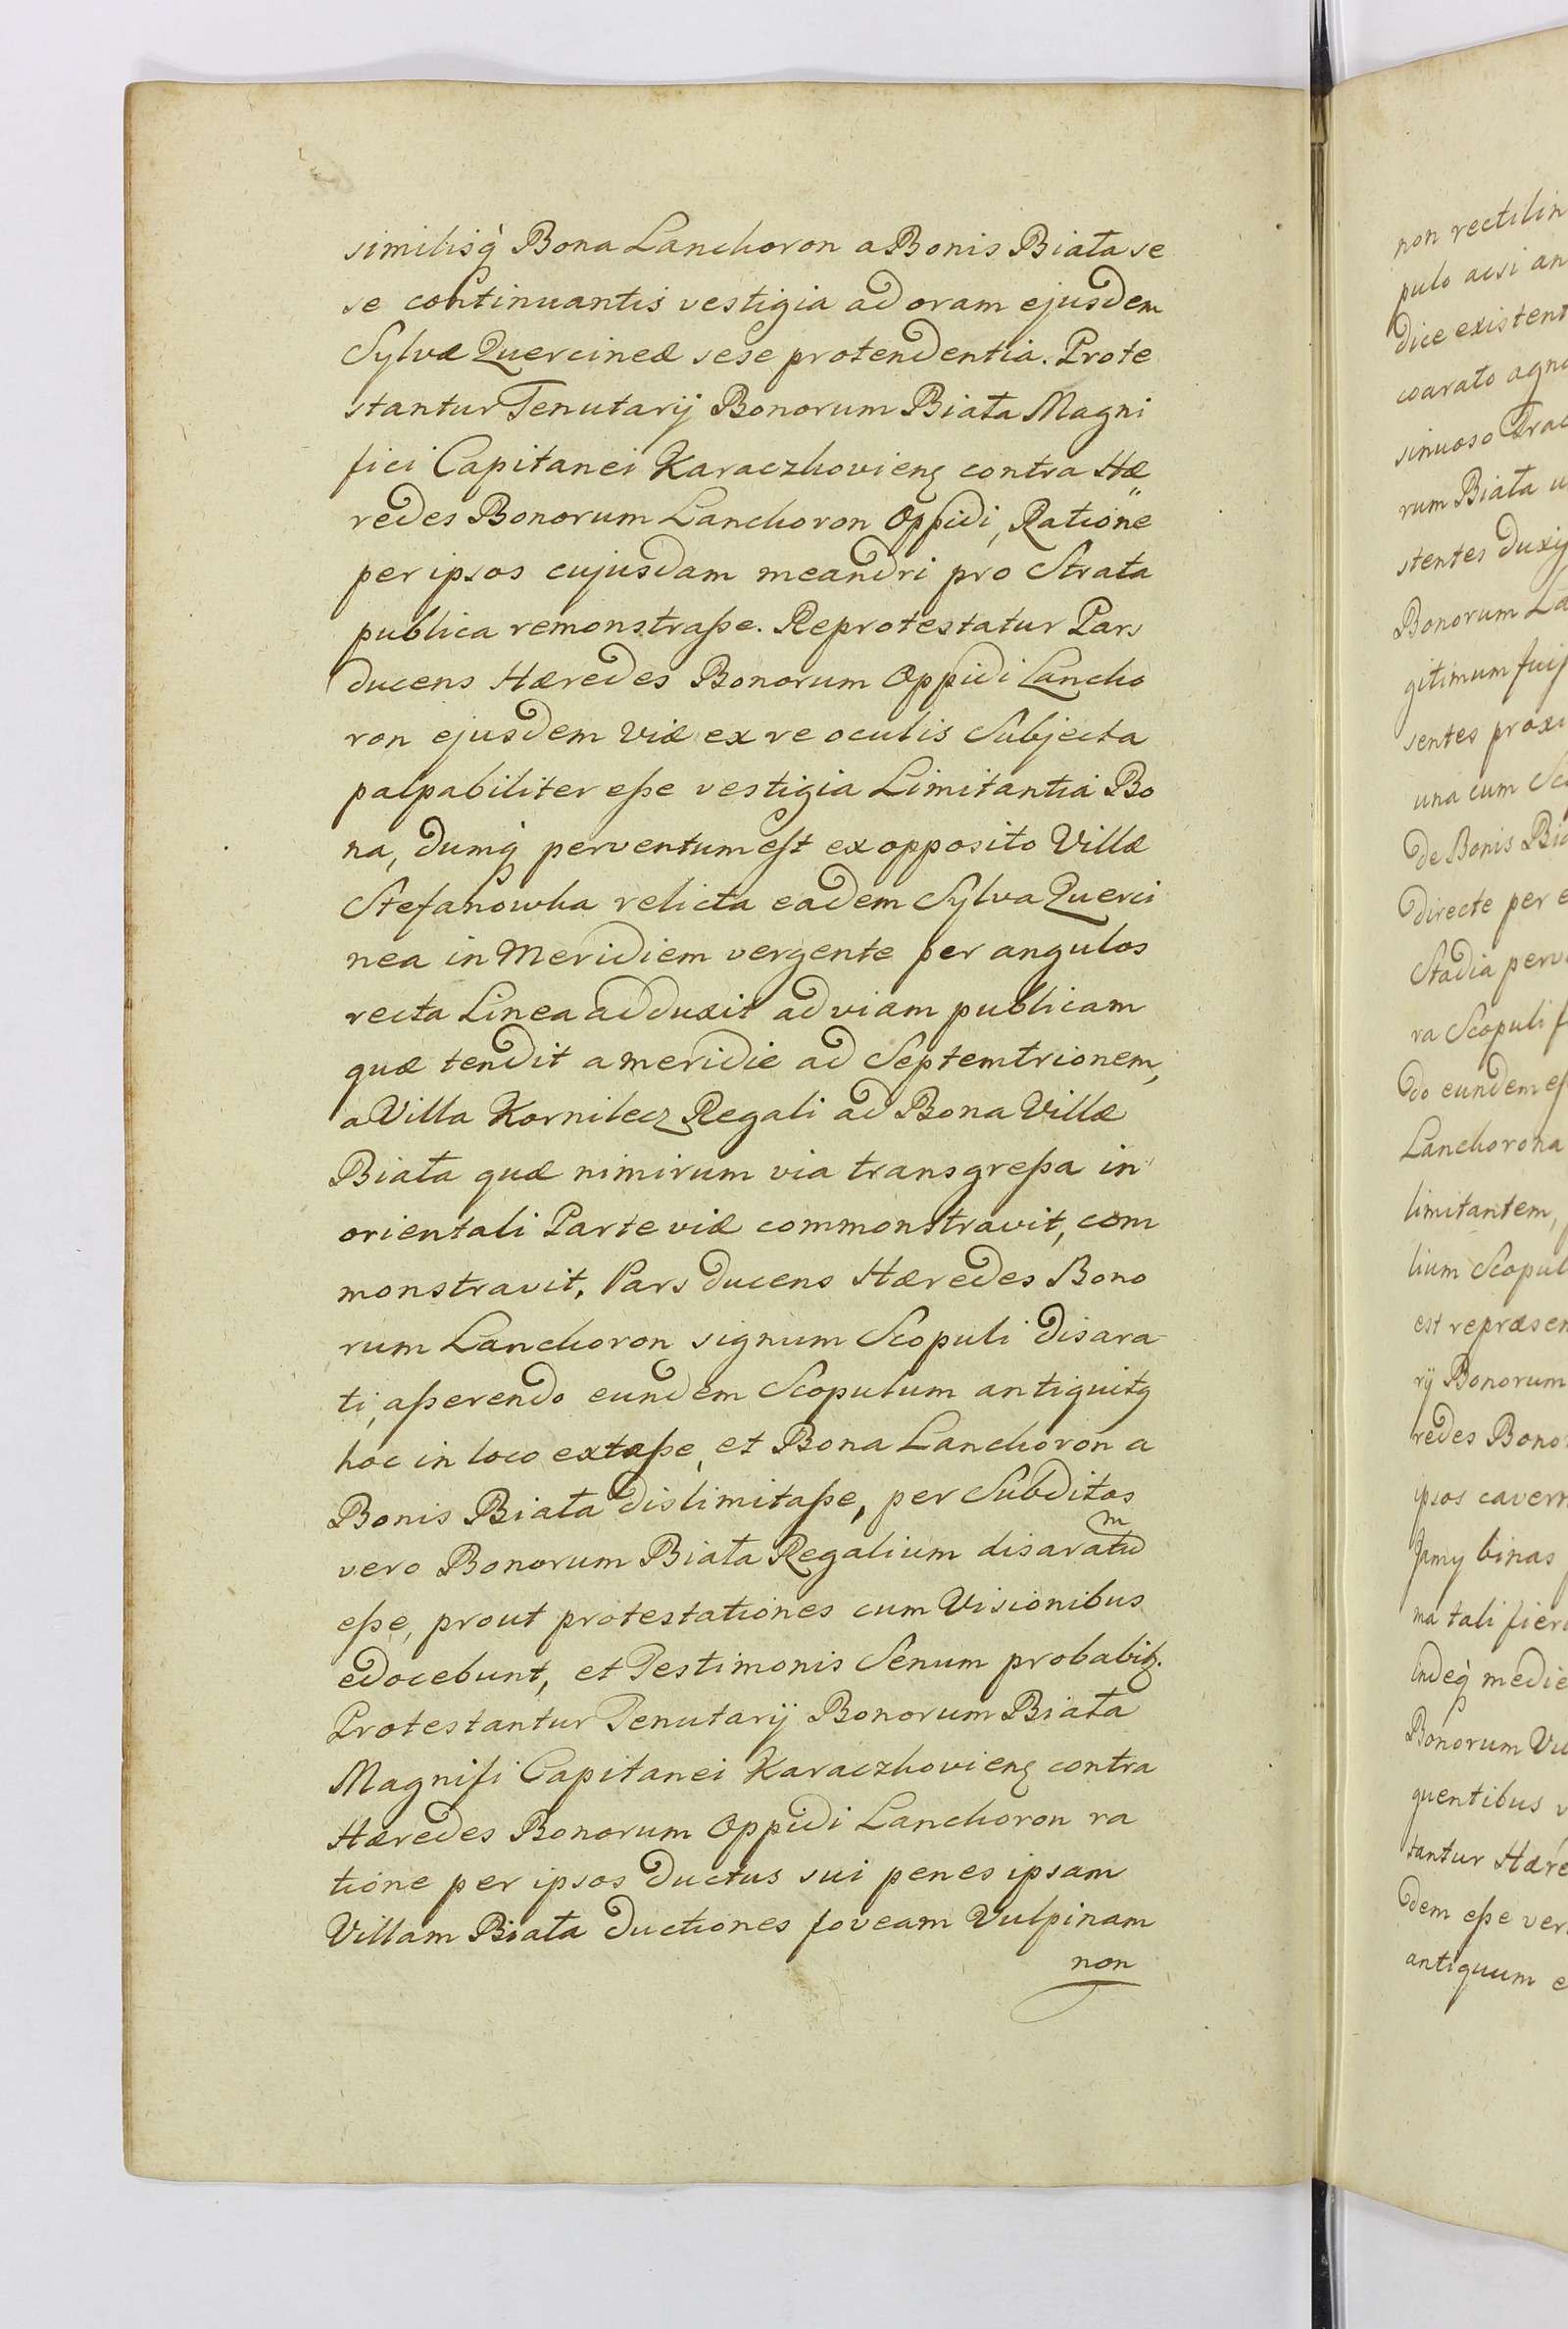 similisq̀ Bona Lanckoron a Bonis Biała se
se continuantis vestigia ad oram ejusdem
Sylvæ Quercineæ sese protendentia. Prote
stantur Tenutarij Bonorum Biała Magni
fici Capitanei Karaczkovienę contra Hæ
redes Bonorum Lanckoron Oppidi, Ratione
per ipsos cujusdam meandri pro Strata
publica remonstraße. Reprotestatur Pars
ducens Hæredes Bonorum Oppidi Lancko
ron ejusdem viæ ex re oculis Subjecta
palpabiliter eße vestigia Limitantia Bo
na, dumq̀ perventum est ex opposito Villæ
Stefanowka relicta eadem Sylva Querci
nea in Meridiem vergente per angulos
recta Linea adduxit ad viam publicam
quæ tendit a meridie ad Septemtrionem,
a Villa Kornilecz Regali ad Bona Villæ
Biała quæ nimirum via transgreßa in
orientali Parte viæ commonstravit, com
monstravit. Pars ducens Hæredes Bono
rum Lanckoron signum Scopuli disara
ti, aßerendo eundem Scopulum antiquitq
hoc in loco extaße, et Bona Lanckoron a
Bonis Biała dislimitaße, per Subditos
vero Bonorum Biała Regalium disaratum
eße, prout protestationes cum Visionibus
edocebunt, et Testimonis Senum probabit.
Protestantur Tenutarij Bonorum Biała
Magnifi Capitanei Karaczkovienę contra
Hæredes Bonorum Oppidi Lanckoron ra
tione per ipsos ductus sui penes ipsam
Villam Biała ductiones foveam Vulpinam
non
non rectilin
pulo acsi an
dice existent
coarato agno
sinuoso trac
rum Biała u
stentes duxij
Bonorum La
gitimum fuiß
sentes proxi
una cum Sc
de Bonis Bia
directe per e
Stadia perv
ra Scopuli f
do eundem eß
Lanckorona
limitantem,
lium Scopul
est repræsen
rij Bonorum
redes Bono
ipsos cavern
Jamq binas
ma tali fieri
Indeq̀ medie
Bonorum Vil
quentibus v
tantur Hære
dem eße ver
antiquum e